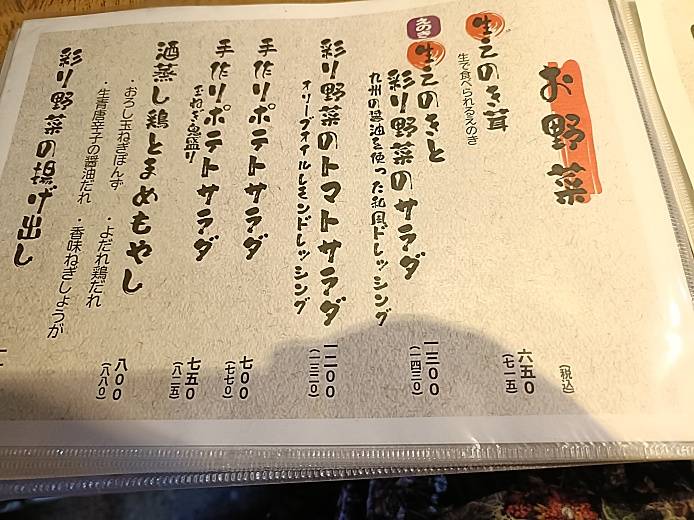 お野菜
(税込)
生えのき茸
生で食べられるえのき
六五〇
(七一五)
えのき
生えのきと
彩り野菜のサラダ
九州の醤油を使った和風ドレッシング
一三〇〇
(一四三〇)
彩り野菜のトマトサラダ
オリーブオイルレモンドレッシング
一二〇〇
(一三二〇)
手作りポテトサラダ
七〇〇
(七七〇)
手作りポテトサラダ
玉ねぎ鬼盛り
七五〇
(八二五)
酒蒸し鶏とまめもやし
・おろし玉ねぎぽんず ・よだれ鶏だれ
・生青唐辛子の醤油だれ ・香味ねぎしょうが
八〇〇
(八八〇)
彩り野菜の揚げ出し